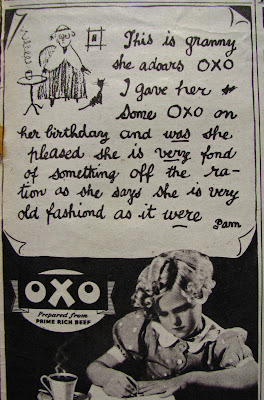 This is granny
she adoars OXO
I gave her
some OXO on
her birthday and was she
pleased she is very fond
of something off the ra-
tion as she says she is very
old fashiond as it were
Pam
OXO
Prepared from
PRIME RICH BEEF